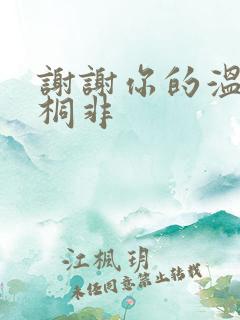 謝謝你的溫
桐非
江楓玥
未经同意禁止转载